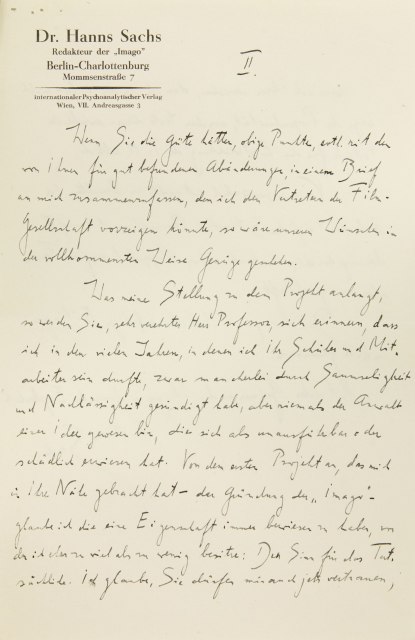 Dr. Hanns Sachs
Redakteur der „Imago"
Berlin-Charlottenburg
Mommsenstraße 7
internationaler Psychoanalytischer Verlag
Wien, VII. Andreasgasse 3
II.
Wenn Sie die Güte hätten, obige Punkte, evtl. mit den
von Ihnen für gut befundenen Abänderungen, in einem Brief
an mich zusammenzufassen, den ich den Vertretern der Film-
Gesellschaft vorzeigen könnte, so wäre unseren Wünschen in
der vollkommensten Weise Genüge geschehen.
Was meine Stellung zu dem Projekt anlangt,
so werden Sie, sehr verehrter Herr Professor, sich erinnern, dass
ich in den vielen Jahren, in denen ich Ihr Schüler und Mit-
arbeiter sein durfte, zwar mancherlei durch Saumseligkeit
und Nachlässigkeit gesündigt habe, aber niemals der Anwalt
einer Idee gewesen bin, die sich als unausführbar oder
schädlich erwiesen hat. Von dem ersten Projekt an, das mich
in Ihre Nähe gebracht hat – der Gründung der „Imago" –
glaube ich die eine Eigenschaft immer bewiesen zu haben, von
der ich eher zu viel als zu wenig besitze: Den Sinn für das Tat-
sächliche. Ich glaube, Sie dürfen mir auch jetzt vertrauen,